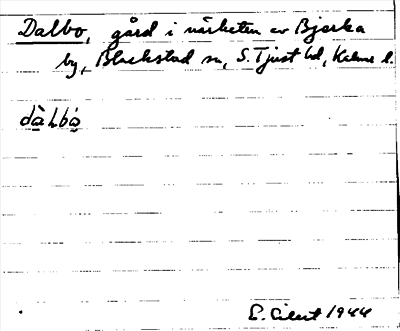 Dalbo, gård i närheten av Bjerka
by, Blackstad sn, S. Tjust hd, Kalmar l.
dàLbò̤
1944